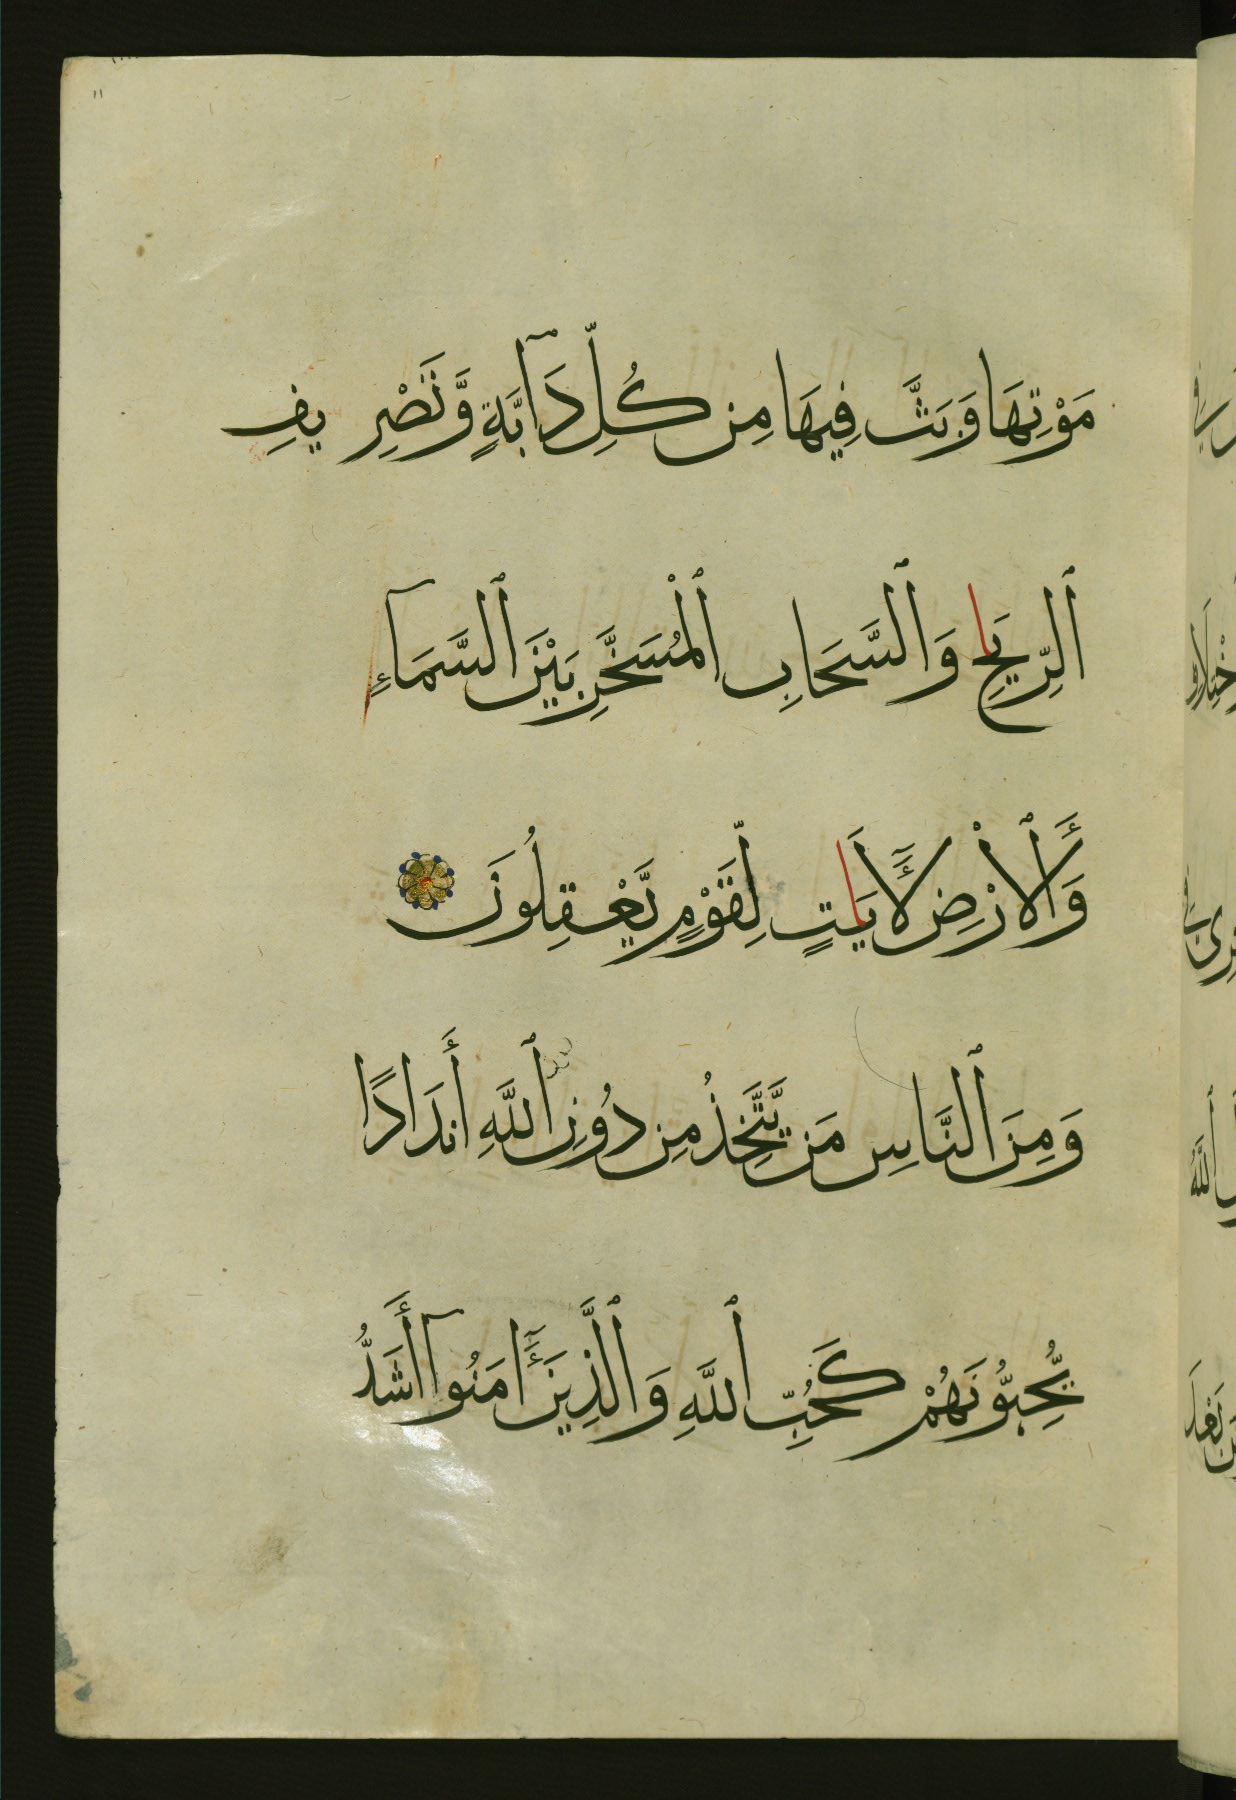 ١١
مَوْتِهَا وَبَثَّ فِيهَا مِن كُلِّ دَآبَّةٍ وَّتَصْرِيفِ
ٱلرِّيَٰحِ وَٱلسَّحَابِ ٱلْمُسَخَّرِ بَيْنَ ٱلسَّمَآءِ
وَٱلْأَرْضِ لَأٓيَٰتٍ لِّقَوْمٍ يَّعْقِلُونَ
وَمِنَ ٱلنَّاسِ مَن يَّتَّخِذُ مِن دُونِ ٱللَّهِ أَندَادًا
يُّحِبُّونَهُمْ كَحُبِّ ٱللَّهِ وَٱلَّذِينَ ءَامَنُوٓا أَشَدُّ